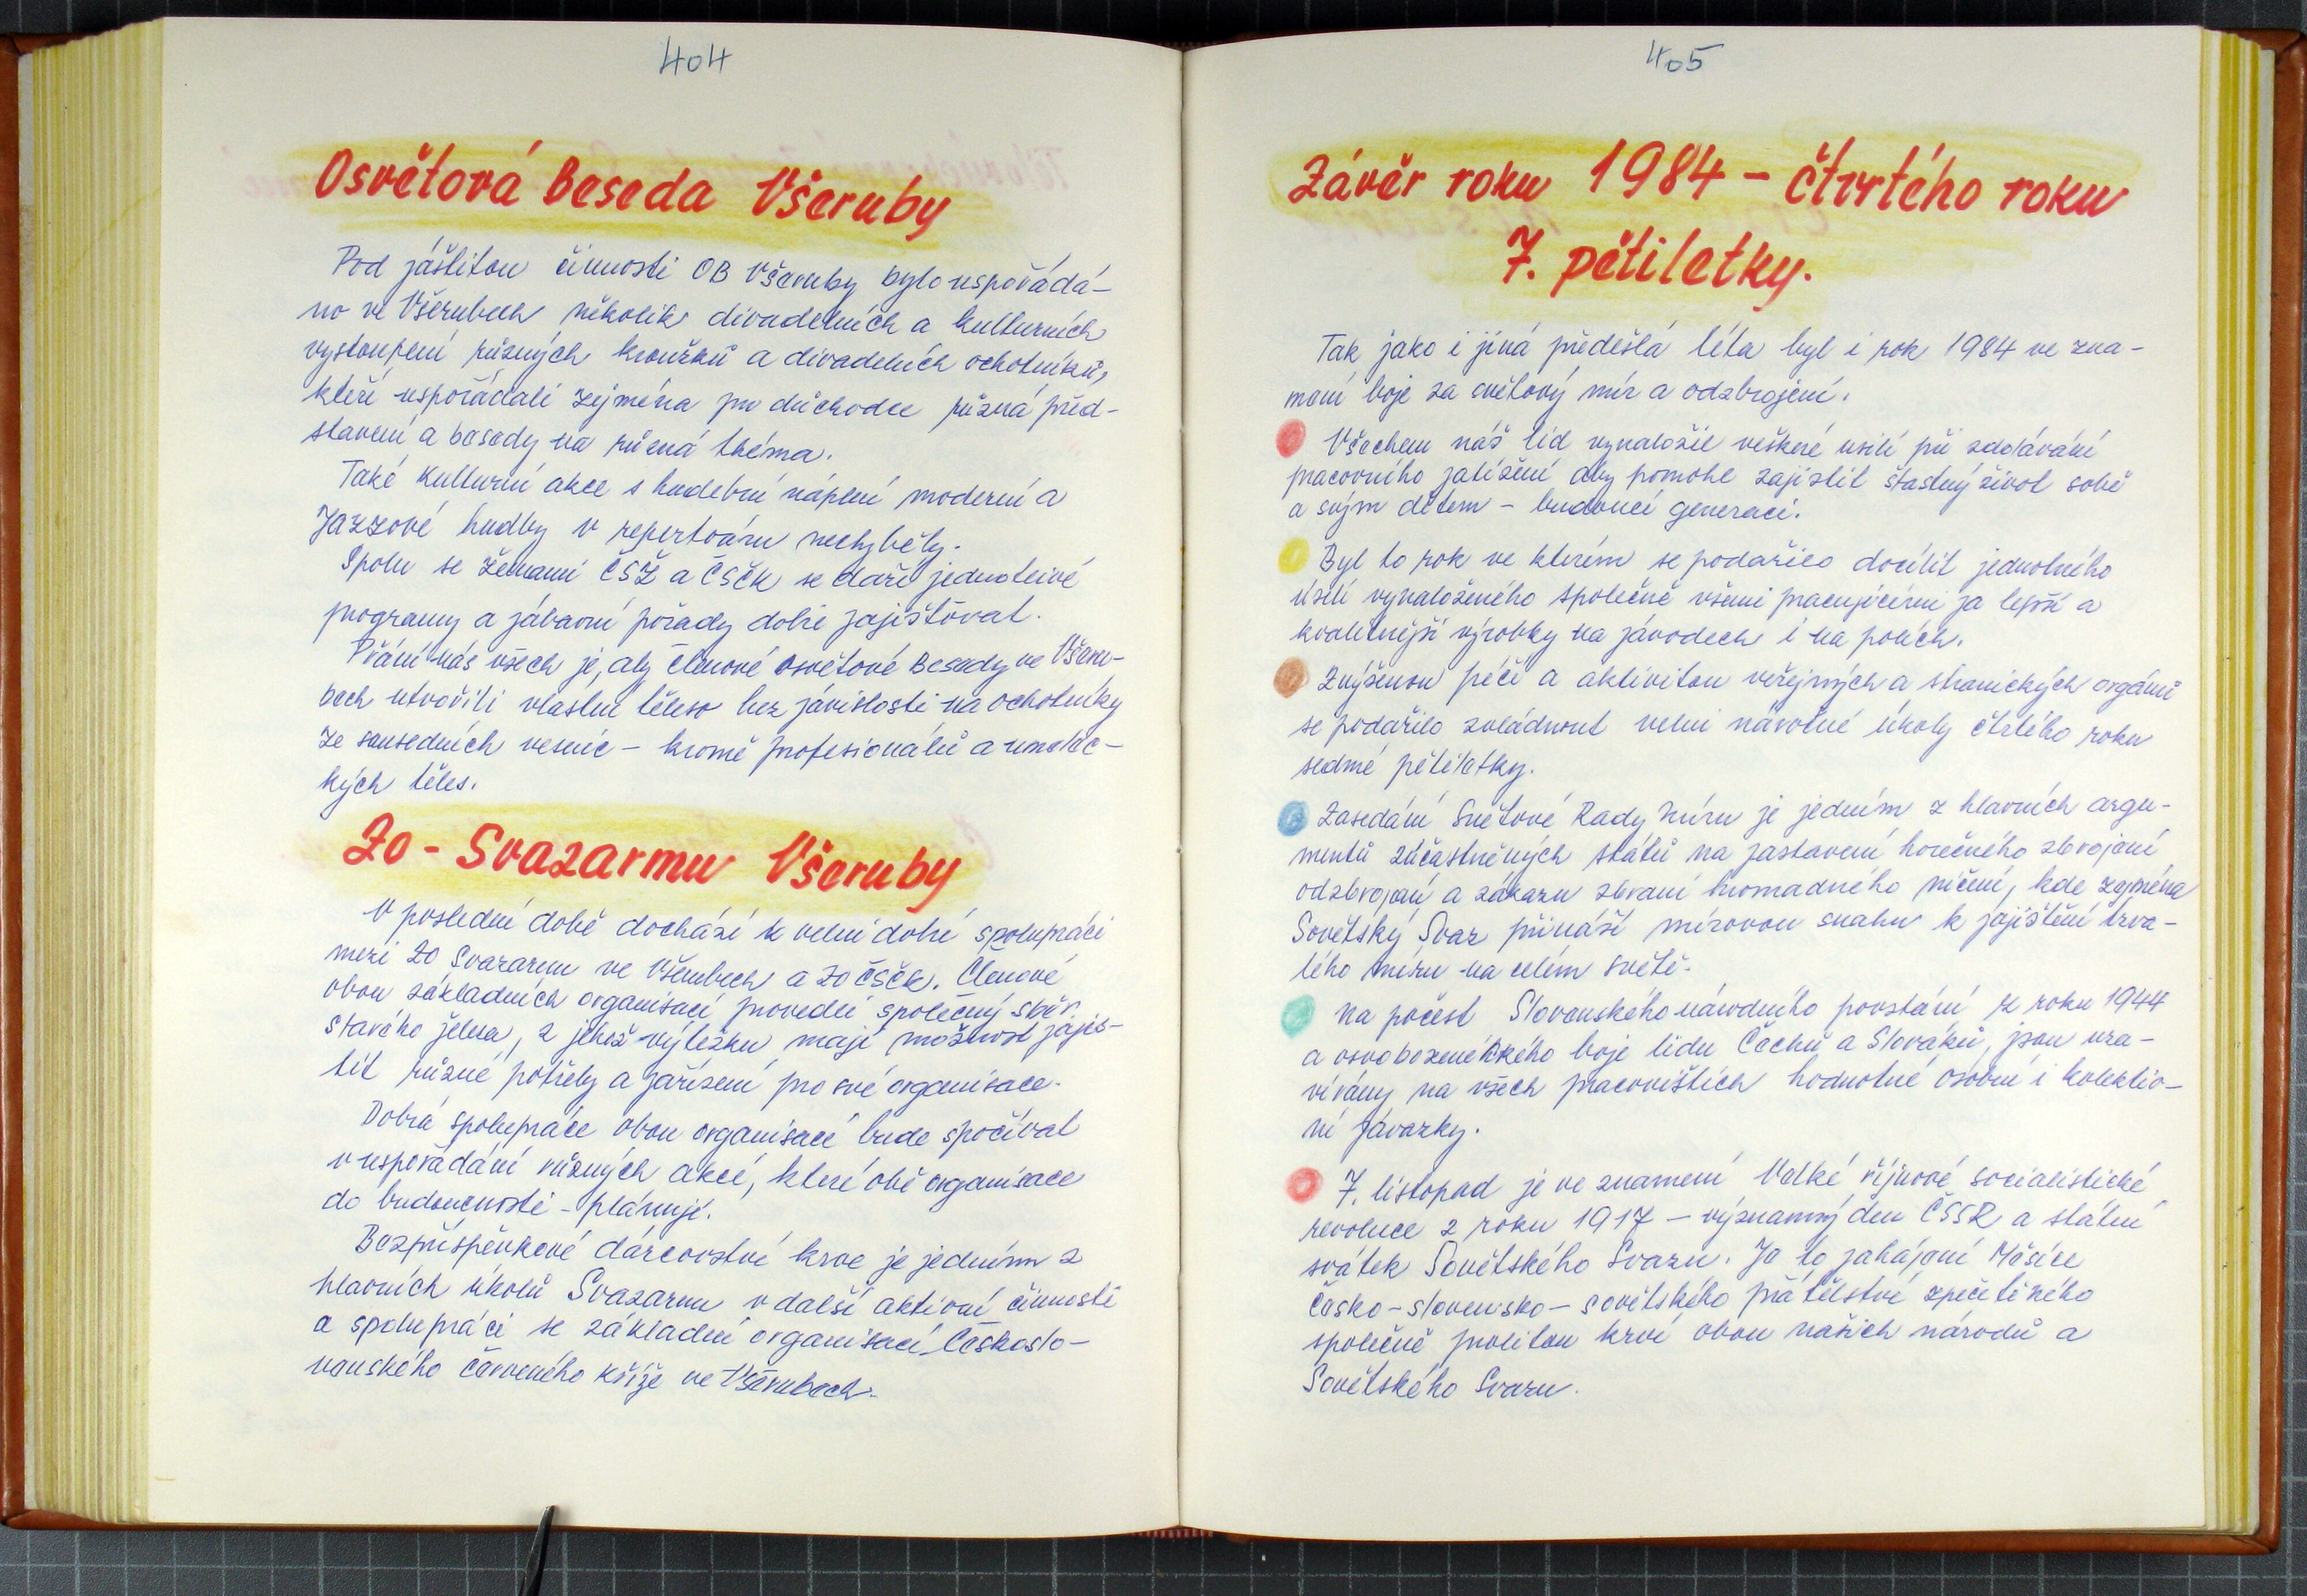 404
Osvětová Beseda Všeruby
Pod záštitou činnosti OB Všeruby bylo uspořádá-
no ve Všerubech několik divadelních a kulturních
vystoupení různých kroužků a divadelních ochotníků,
kteří uspořádali zejména pro důchodce různá před-
stavení a besedy na různá théma.
Také kulturní akce s hudební náplní moderní a
Jazzové hudby v repertoáru nechyběly.
Spolu se ženami ČSŽ a ČSČK se daří jednotlivé
programy a zábavní pořady dobře zajišťovat.
Přání nás všech je, aby členové osvětové Besedy ve Všeru-
bech utvořili vlastní těleso bez závislosti na ochotníky
ze sousedních vesnic - kromě profesionálů a umělec-
kých těles.
Zo - Svazarmu Všeruby
V poslední době dochází k velmi dobré spolupráci
mezi ZO Svazarmu ve Všerubech a ZO ČSČK. Členové
obou základních organisací provedli společný sběr
starého železa, z jehož výtěžku mají možnost zajis-
tit různé potřeby a zařízení pro své organisace.
Dobrá spolupráce obou organisací bude spočívat
v uspořádání různých akcí, které obě organisace
do budoucnosti - plánují.
Bezpříspěvkové dárcovství krve je jedním z
hlavních úkolů Svazarmu v další aktivní činnosti
a spolupráci se základní organisací Českoslo-
venského červeného kříže ve Všerubech.
405
Závěr roku 1984 - čtvrtého roku
7. pětiletky.
Tak jako i jiná předešlá léta byl i rok 1984 ve zna-
mení boje za světový mír a odzbrojení.
Všechen náš lid vynaložil veškeré usilí při zdolávání
pracovního zatížení aby pomohl zajistit šťastný život sobě
a svým dětem - budoucí generaci.
Byl to rok ve kterém se podařilo docílit jednotného
úsilí vynaloženého společně všemi pracujícími za lepší a
kvalitnější výrobky na závodech i na polích.
Zvýšenou péčí a aktivitou veřejných a stranických orgánů
se podařilo zvládnout velmi náročné úkoly čtvrtého roku
sedmé pětiletky.
Zasedání Světové Rady Míru je jedním z hlavních argu-
mentů zúčastněných států na zastavení horečného zbrojení
odzbrojení a zákazu zbraní hromadného ničení, kde zejména
Sovětský Svaz přináší mírovou snahu k zajištění trva-
lého míru na celém světě.
Na počest Slovenského národního povstání z roku 1944
a osvobozeneckého boje lidu Čechů a Slováků, jsou uza-
vírány na všech pracovištích hodnotné osobní i kolektiv-
ní závazky.
7. listopad je ve znamení Velké říjnové socialistické
revoluce z roku 1917 - významný den ČSSR a státní
svátek Sovětského Svazu. Je to zahájení Měsíce
Česko-slovensko - sovětského přátelství zpečetěného
společně prolitou krví obou našich národů a
Sovětského Svazu.